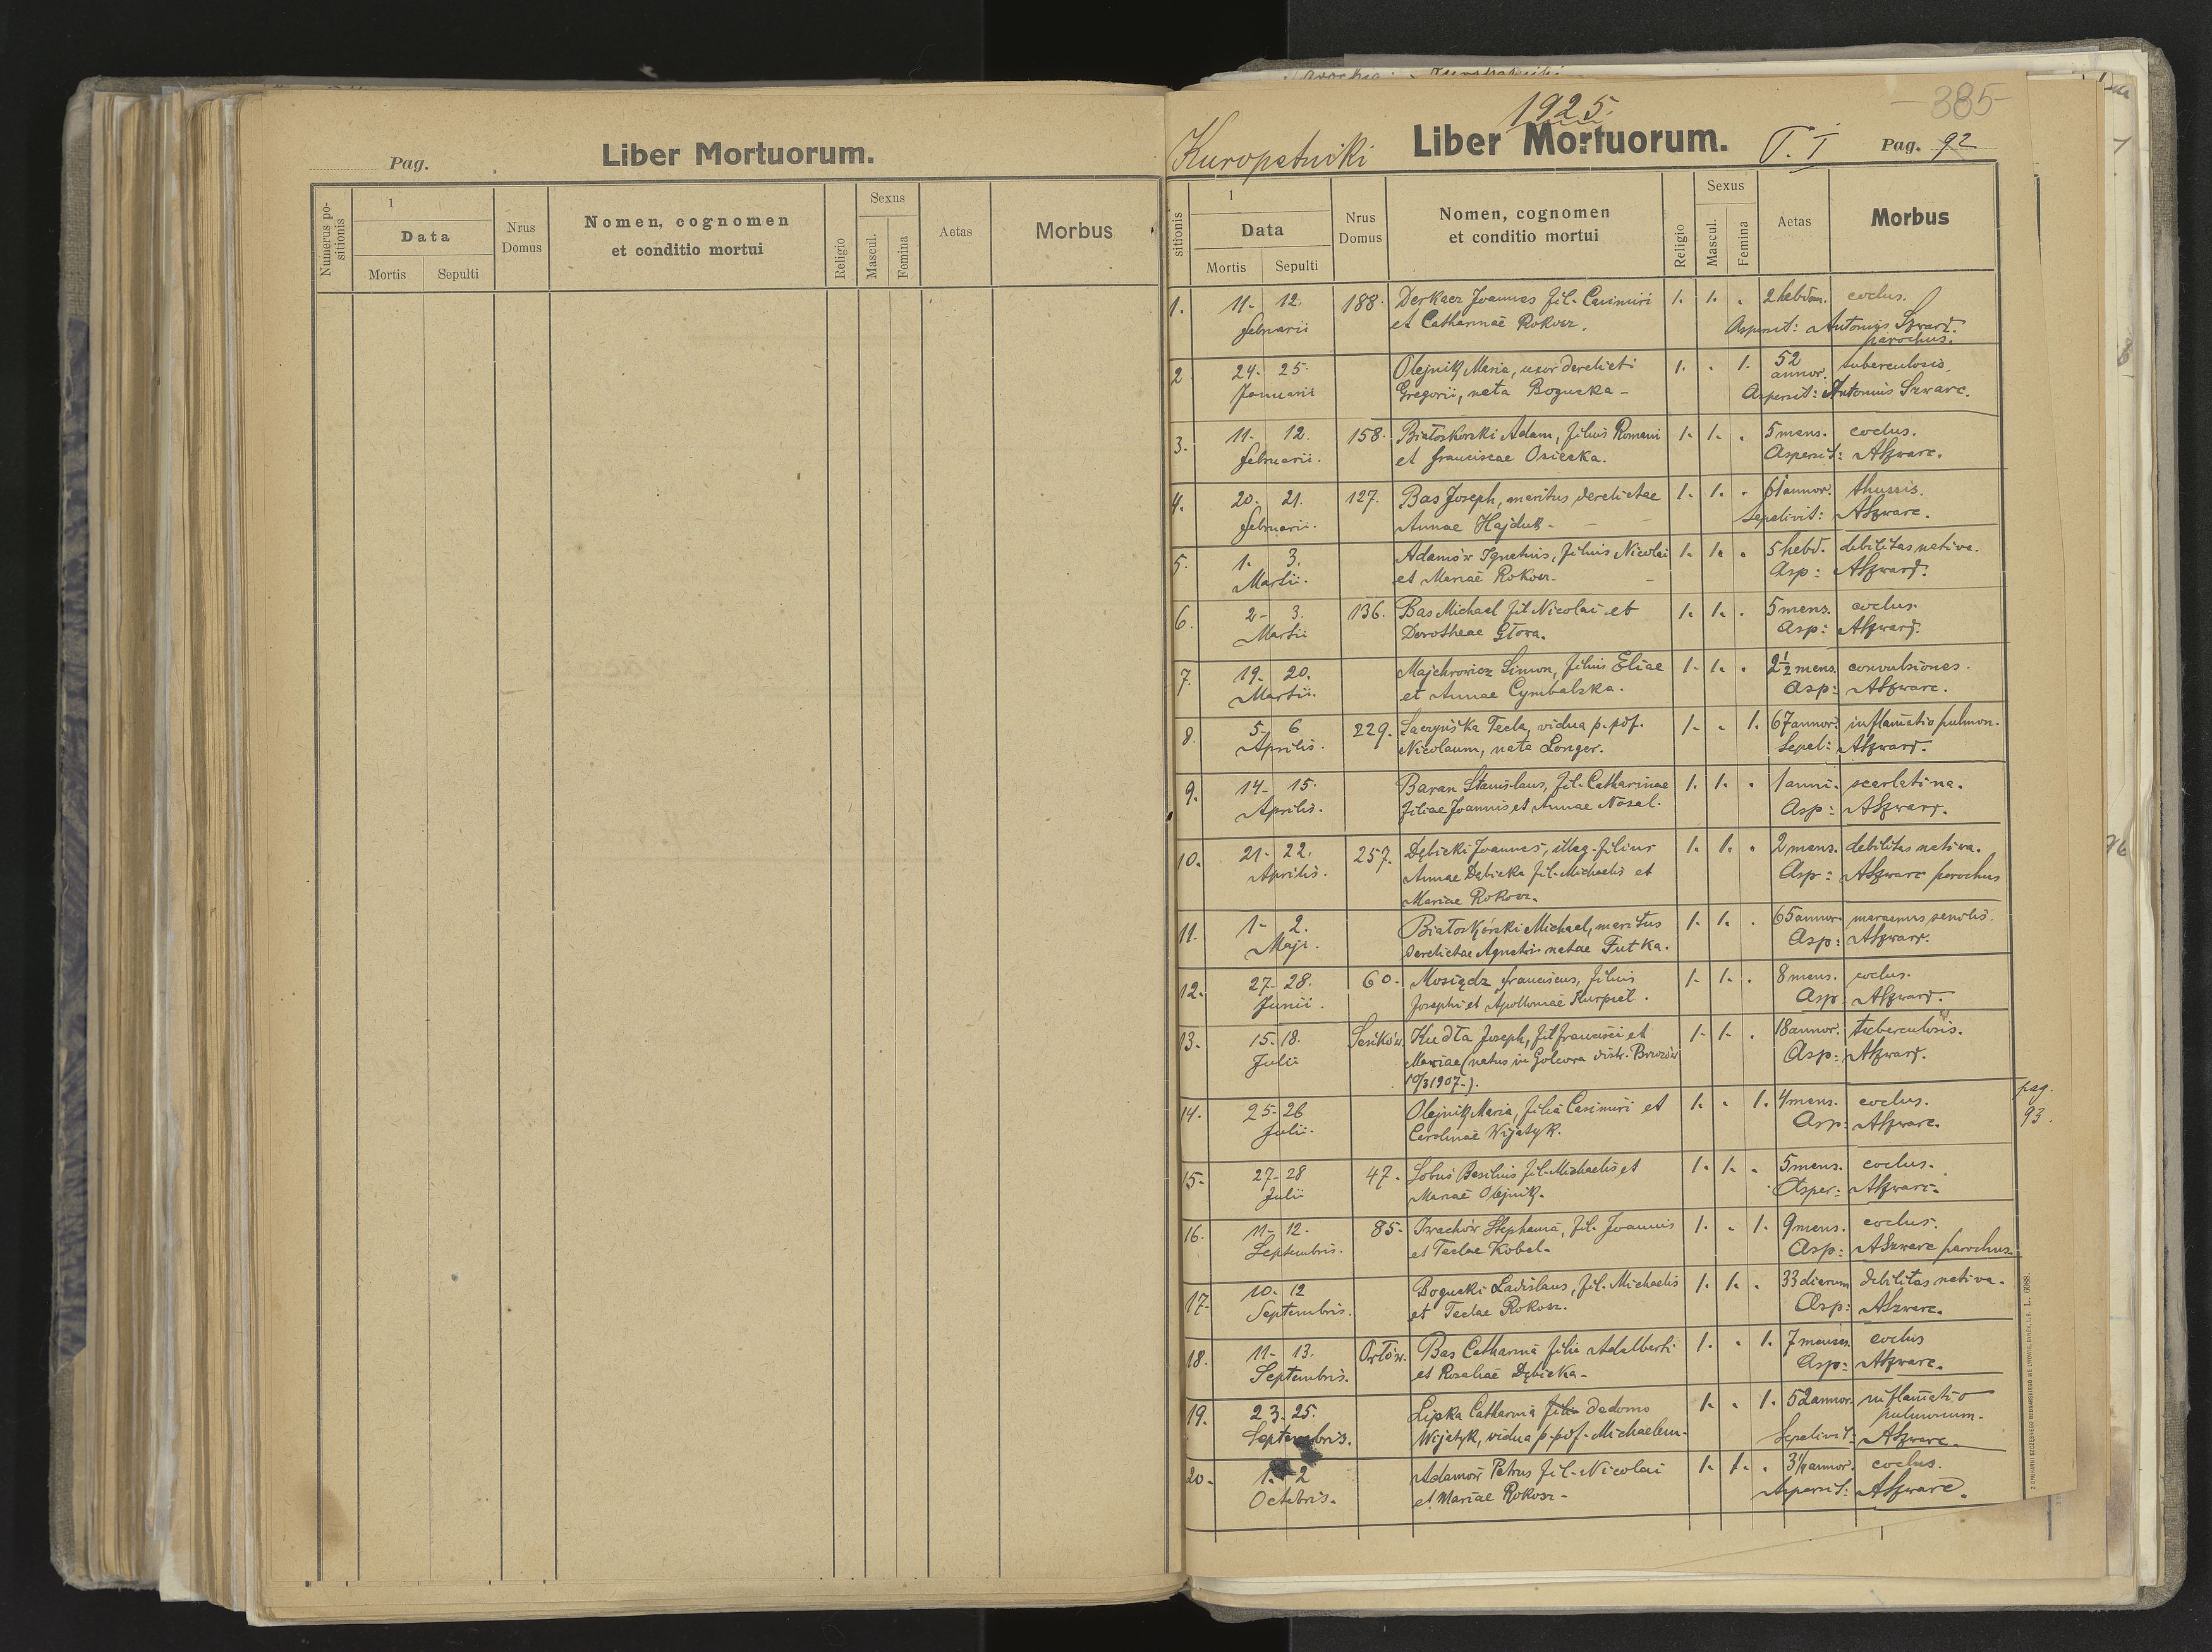 Pag.
Liber Mortuorum.
Numerus positionis
1
Data
Mortis
Sepulti
Nrus Domus
Nomen, cognomen et conditio mortui
Religio
Sexus
Mascul.
Femina
Aetas
Morbus
1925.
385
Kuropatniki
Liber Mortuorum.
T. I
Pag. 92
sitionis
1
Data
Mortis
Sepulti
Nrus Domus
Nomen, cognomen et conditio mortui
Religio
Sexus
Mascul.
Femina
Aetas
Morbus
1. 11- 12. 188. Derkacz Joannes fil. Casimiri 1. 1. . 2 hebdom. coclus.
februarii et Catharinae Rokosz. Aspersit: Antonius Szwarc.
parochus.
2 24- 25. Olejnik Maria, uxor derelicti 1. . 1. 52 annor. tuberculosis.
Januarii Gregorii, nata Bogucka - Aspersit: Antonius Szwarc.
3. 11- 12. 158. Białoskorski Adam, filius Romani 1. 1. . 5 mens. coclus.
februarii. et franciscae Osiecka. Aspersit: ASzwarc.
4. 20. 21. 127. Bas Joseph, maritus derelictae 1. 1. . 61 annor. thussis.
februarii. Annae Hajduk - Sepelivit: ASzwarc.
5. 1. 3. Adamów Ignatius, filius Nicolai 1. 1. . 5 hebd. debilitas nativa.
Martii. et Mariae Rokosz. Asp: ASzwarc.
6. 2- 3. 136. Bas Michael fil Nicolai et 1. 1. . 5 mens. coclus.
Martii Dorotheae Głowa. Asp: ASzwarc.
7. 19- 20. Majchrowicz Simon, filius Eliae 1. 1. . 2 1/2 mens. convulsiones.
Martii. et Annae Cymbalska. Asp: ASzwarc.
8. 5- 6 229. Tecla, vidua p. pdf. 1. . 1. 67 annor. inflamatio pulmon.
Aprilis. Nicolaum, nata Longer. Sepel: ASzwarc.
9. 14- 15. Baran Stanislaus, fil. Catharinae 1. 1. . 1 anni. scarlatina.
Aprilis. filiae Joannis et Annae Nosal. Asp: ASzwarc.
10. 21- 22. 257. Dębicki Joannes, illeg. filius 1. 1. . 2 mens. debilitas nativa.
Aprilis. Annae Dębicka fil. Michaelis et Asp: ASzwarc parochus
Mariae Rokosz.
11. 1- 2. Białoskórski Michael, maritus 1. 1. . 65 annor. marasmus senilis.
Maji. derelictae Agnetis natae Futka. Asp: ASzwarc.
12. 27- 28. 60. Mosiądz franciscus, filius 1. 1. . 8 mens. coclus.
Junii. Josephi et Apolloniae Kurpiel. Asp: ASzwarc.
13. 15- 18. Kudła Joseph, fil francisci et 1. 1. . 18 annor. tuberculosis.
Julii Mariae (natus in Golcowa distr. Brzozów Asp: ASzwarc.
10/3 1907.-).
14. 25- 26 Olejnik Maria, filia Casimiri et 1. . 1. 4 mens. coclus. pag.
Julii. Carolinae Wijatyk. Asp: ASzwarc. 93.
15- 27- 28 47. Łobus Basilius fil. Michaelis et 1. 1. . 5 mens. coclus.
Julii Mariae Olejnik. Asper: ASzwarc.
16. 11- 12. 85. Iwachów Stephania, fil. Joannis 1. . 1. 9 mens. coclus.
Septembris. et Teclae Kobel. Asp: ASzwarc parochus.
17. 10. 12 Bogucki Ladislaus, fil. Michaelis 1. 1. . 33 dierum debilitas nativa.
Septembris. et Teclae Rokosz. Asp: ASzwarc.
18. 11- 13. Orłów. Bas Catharina filia Adalberti 1. . 1. 7 menses. coclus
Septembris. et Rosaliae Dębicka - Asp: ASzwarc.
19. 23. 25. Lipka Catharina filia dedomo 1. . 1. 52 annor. inflamatio
Septembris. Wijatyk, vidua p. pdf. Michaelem - Sepelivit: pulmonum. ASzwarc.
20. 1. 2 Adamów Petrus fil. Nicolai 1. 1. . 3 1/2 annor. coclus.
Octobris. et Mariae Rokosz - Aspersit: ASzwarc.